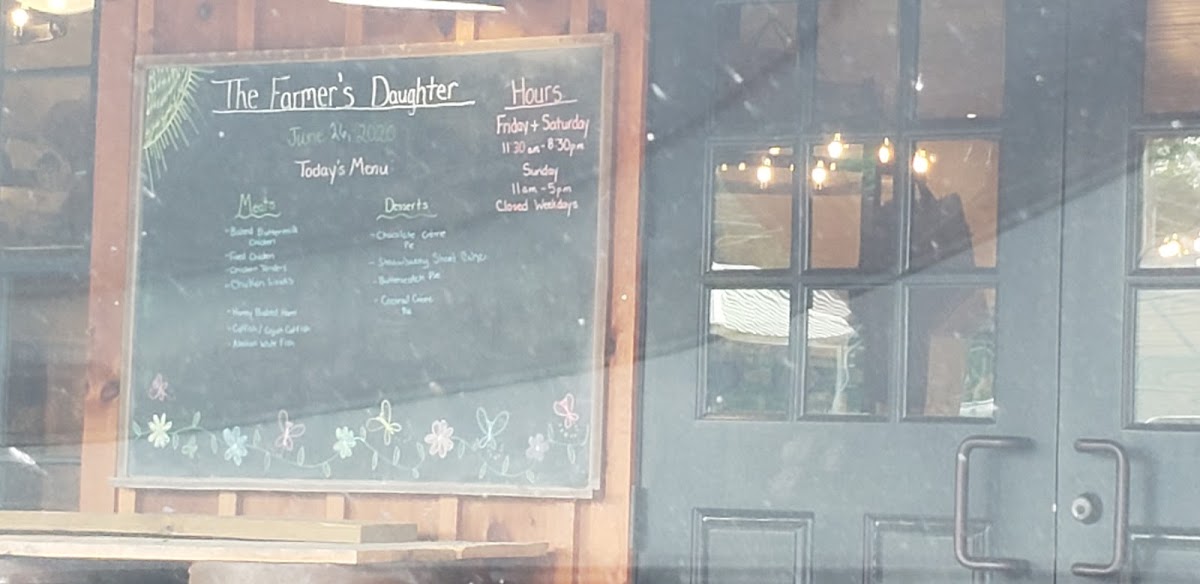 The Farmer's Daughter
June 26, 2020
Today's Menu
Meats
- Baked Buttermilk
Chicken
- Fried Chicken
- Chicken Tenders
- Chicken Livers
- Honey Baked Ham
- Catfish / Cajun Catfish
- Alaskan White Fish
Desserts
- Chocolate Créme
Pie
- Strawberry Short Cake
- Butterscotch Pie
- Coconut Créme
Pie
Hours
Friday + Saturday
11:30 am - 8:30pm
Sunday
11am - 5pm
Closed Weekdays